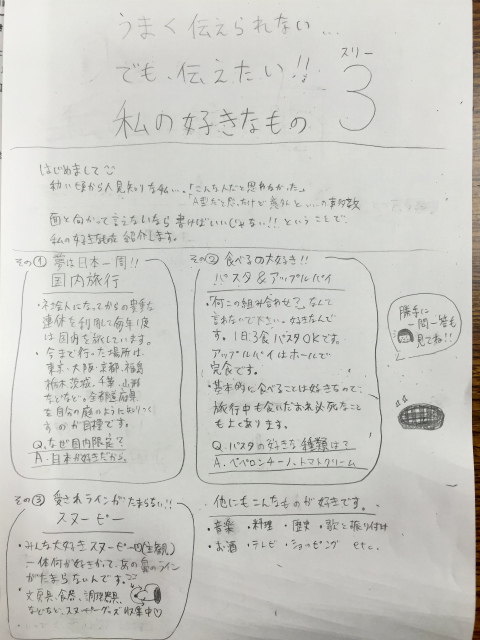 うまく伝えられない…
でも、伝えたい!!
私の好きなもの
スリー
3
はじめまして
幼い頃から人見知りな私…。「こんな人だと思わなかった。」
「A型だと思ったけど意外と…」の事故数
面と向かって言えないなら書けばいいじゃない!!ということで、
私の好きなもの紹介します。
その① 夢は日本一周!!
国内旅行
・社会人になってからの貴重な
連休を利用して毎年1度
は国内を旅しています。
・今まで行った場所は、
東京、大阪、京都、福島
栃木、茨城、千葉、山形
などなど。全都道府県
を自分の庭のように知りつく
すのが目標です。
Q.なぜ国内限定?
A.日本が好きだから。
その② 食べるの大好き!!
パスタ&アップルパイ
・「何この組み合わせ?」なんて
言わないで下さい。好きなんで
す。1日3食パスタOKです。
アップルパイはホールで
完食です。
・基本的に食べることは好きなので、
旅行中も食いだおれ必死なこと
もよくあります。
Q.パスタの好きな種類は?
A.ペペロンチーノ、トマトクリーム
勝手に
一問一答も
見てね!!
その③ 愛されラインがたまらない!!
スヌーピー
・みんな大好きスヌーピー
一体何が好きかって、あの鼻のライン
がたまらないんです。
・文房具、食器、調理器具、
などなど、スヌーピーグッズ収集中♡
他にもこんなものが好きです。
・音楽 ・料理 ・歴史 ・歌と振り付け
・お酒 ・テレビ ・ショッピング etc.